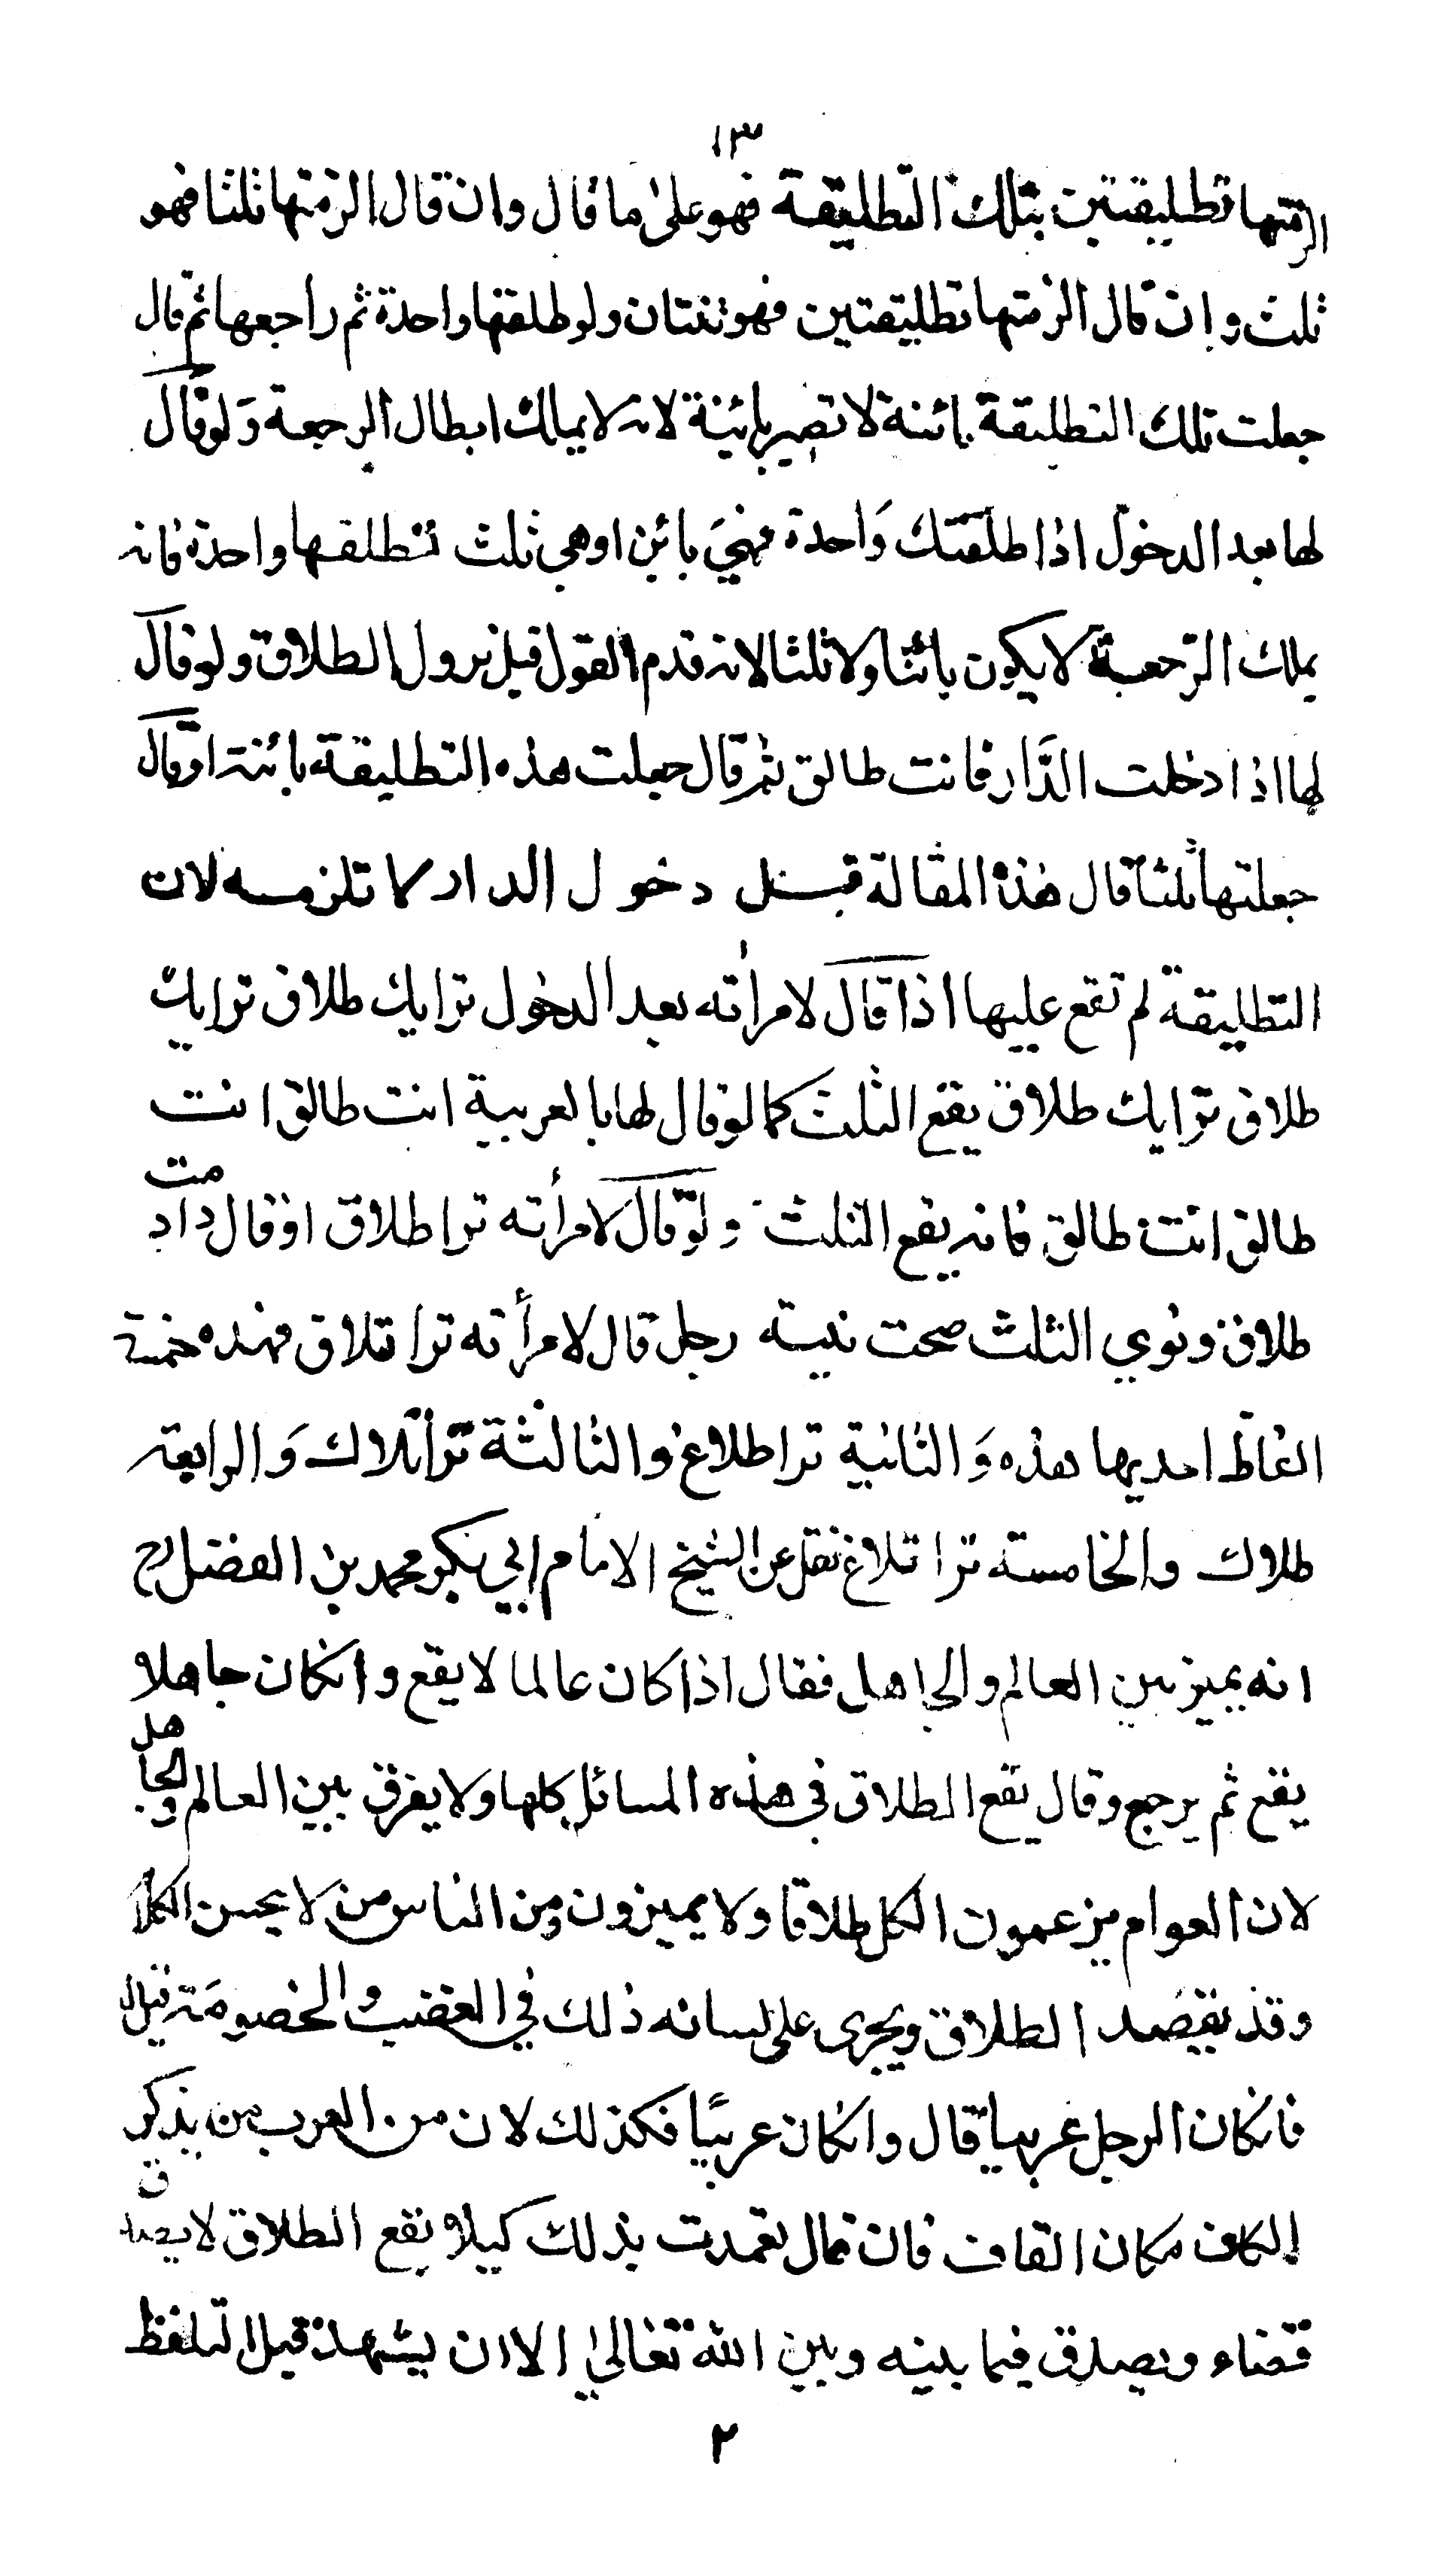 ١٣
الزمتها تطليقتين بتلك التطليقة فهو على ما قال وان قال الزمتها ثلثا فهو
ثلث وان قال الزمتها تطليقتين فهو ثنتان ولو طلقها واحدة ثم راجعها ثم قال
جعلت تلك التطليقة بائنة لا تصير بائنة لانه لا يملك ابطال الرجعة ولو قال
لها بعد الدخول اذا طلقتك واحدة فهي بائن او هي ثلث فطلقها واحدة فانه
يملك الرجعة لا يكون بائنا ولا ثلثا لانه قدم القول قبل نزول الطلاق ولو قال
لها اذا دخلت الدار فانت طالق ثم قال جعلت هذه التطليقة بائنة او قال
جعلتها ثلثا قال هذه المقالة قبل دخول الدار لا تلزمه لان
التطليقة لم تقع عليها اذا قال لامراته بعد الدخول ترا يك طلاق ترا يك
طلاق ترا يك طلاق يقع الثلث كما لو قال لها بالعربية انت طالق انت
طالق انت طالق فانه يقع الثلث ولو قال لامرأته ترا طلاق او قال دادمت
طلاق ونوي الثلث صحت نيته رجل قال لامرأته ترا تلاق فهذه خمسة
الفاظ احديها هذه والثانية ترا طلاغ والثالثة ترا تلاك والرابعة
طلاك والخامسة ترا تلاغ نقل عن الشيخ الامام ابي بكر محمد بن الفضل رح
انه يميز بين العالم والجاهل فقال اذا كان عالما لا يقع وانكان جاهلا
يقع ثم يرجع وقال يقع الطلاق في هذه المسائل كلها ولا يفرق بين العالم والجاهل
لان العوام يزعمون الكل طلاقا ولا يميزون ومن الناس من لا يحسن الكلام
وقد يقصد الطلاق ويجرى على لسانه ذلك في الغضب والخصومة قيل له
فانكان الرجل عربيا قال وانكان عربيا فكذلك لان من العرب من يذكر
الكاف مكان القاف فان قال تعمدت بذلك كيلا يقع الطلاق لا يصدق
قضاء ويصدق فيما بينه وبين الله تعالى الا ان يشهد قبل التلفظ
٢